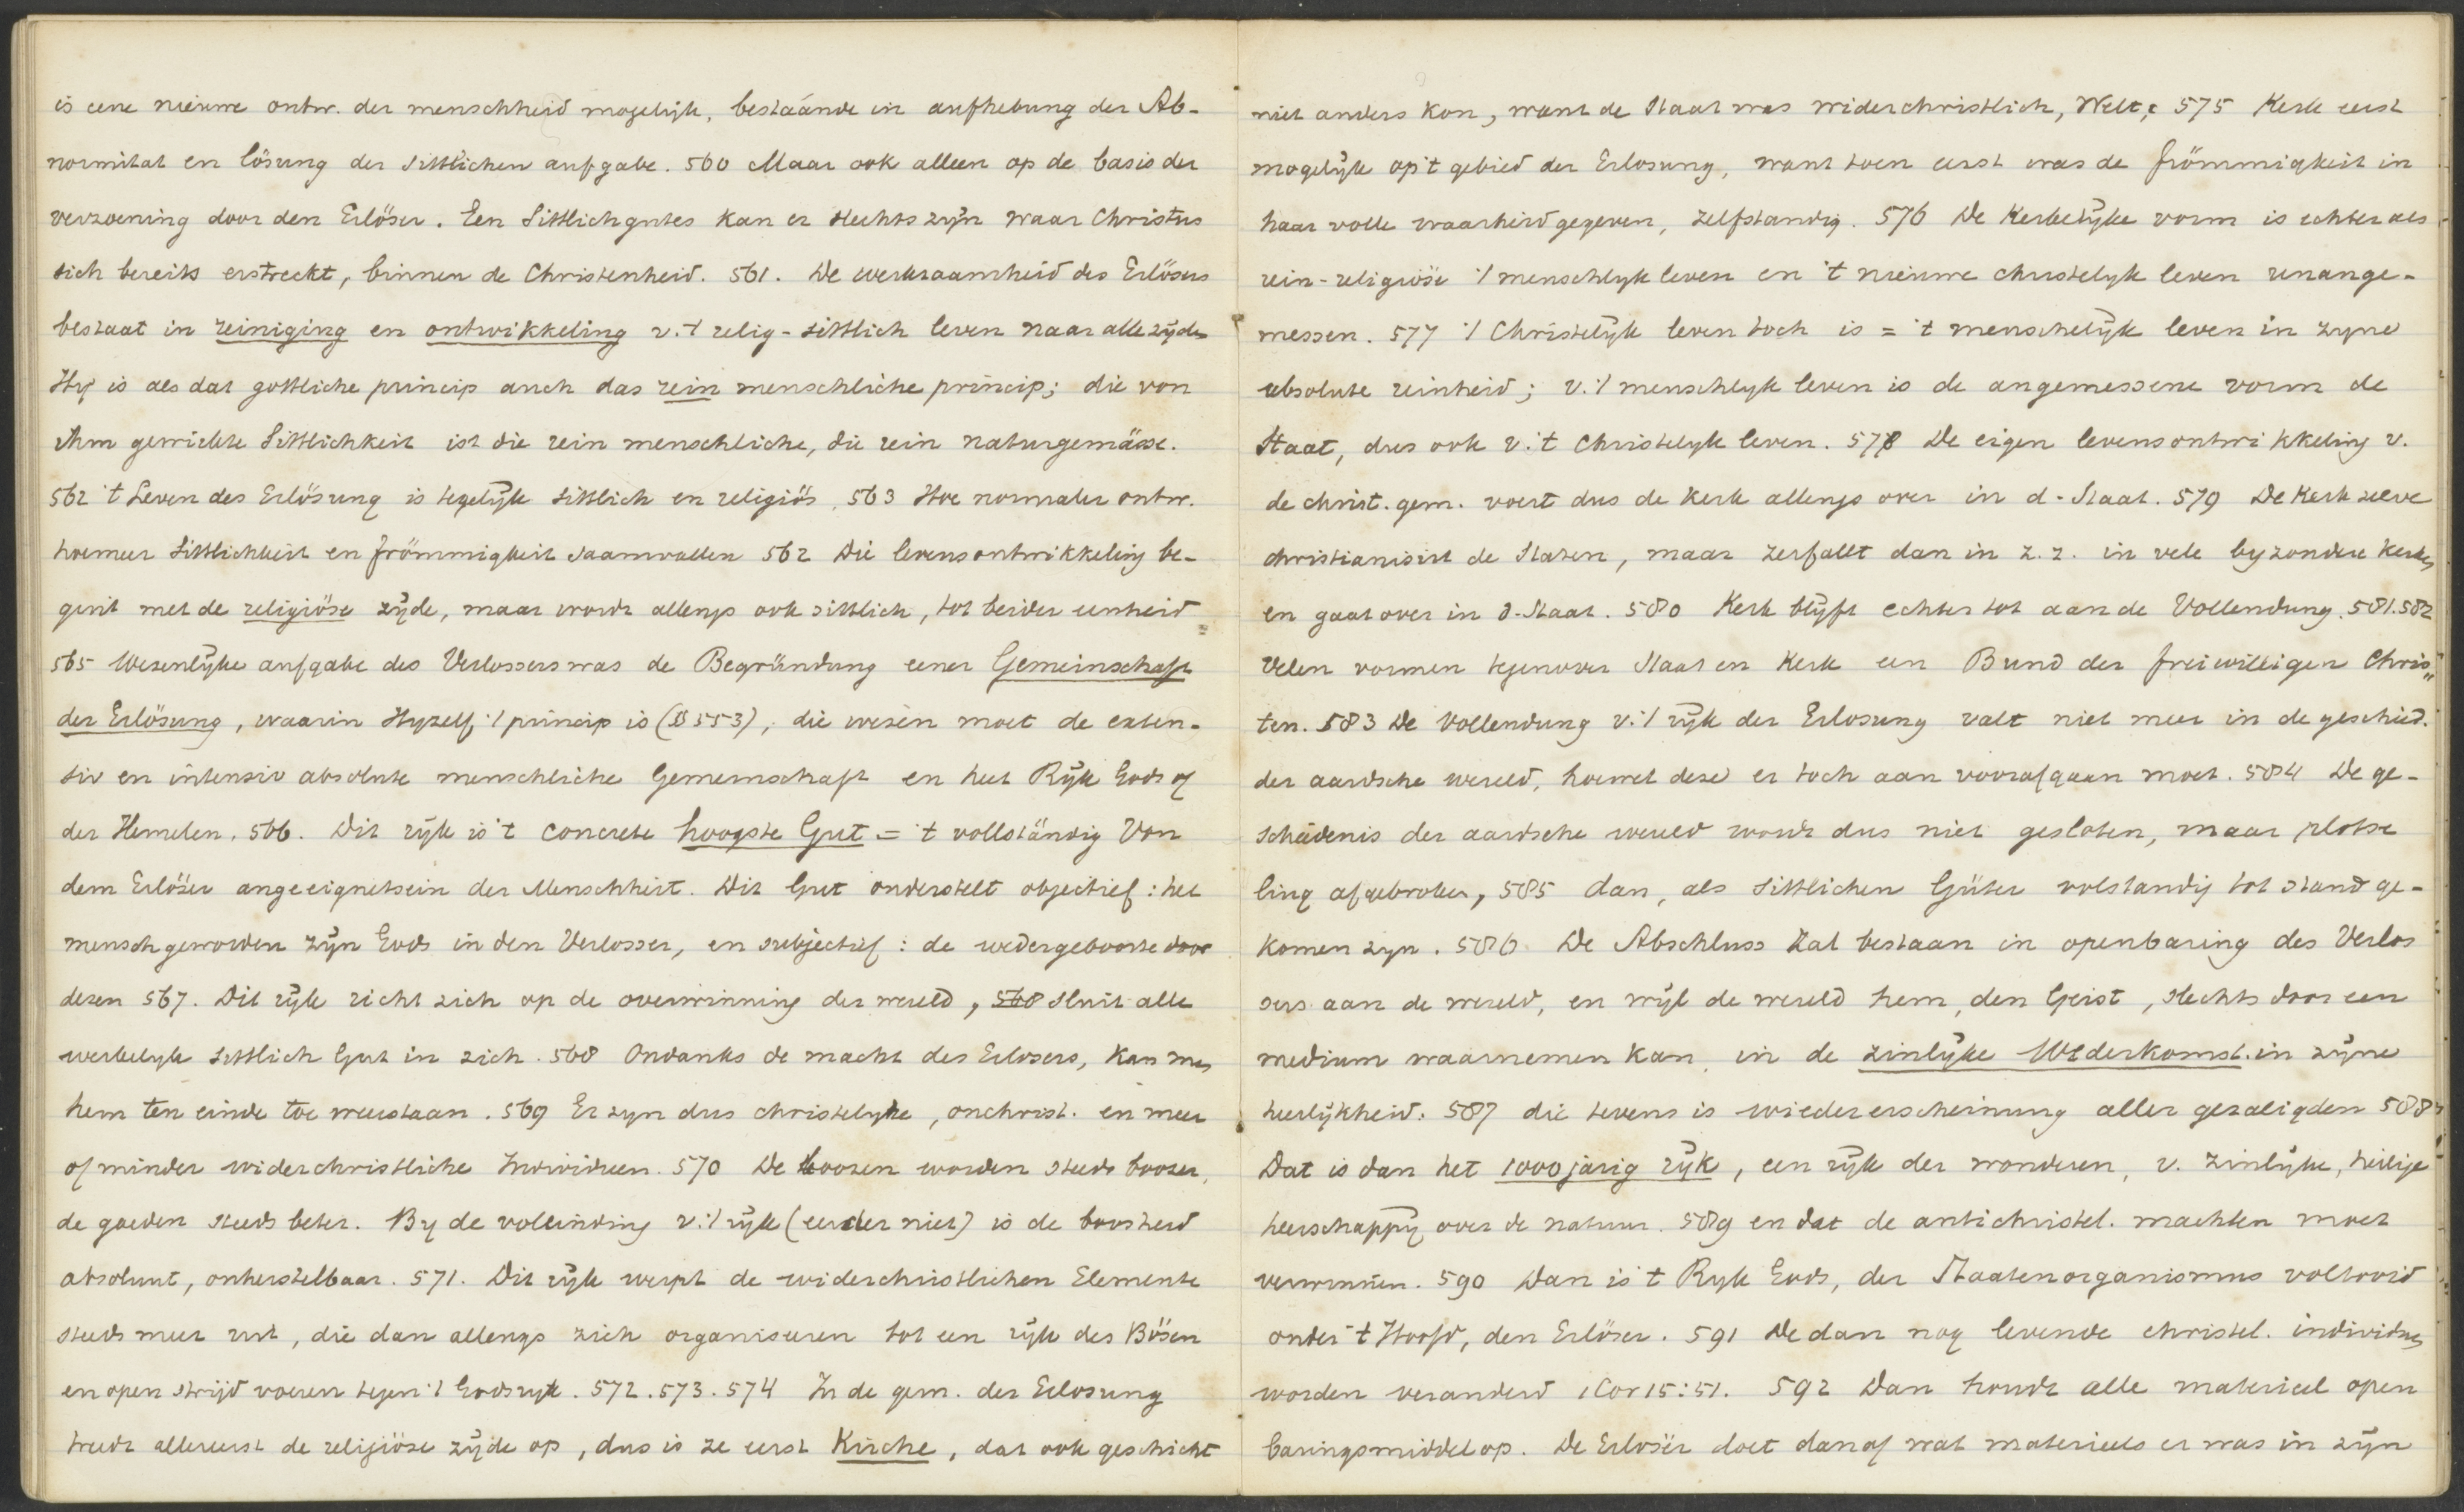 is eene nieuwe ontw. der menschheid mogelijk, bestaánde in aufhebung der Ab-
normitat en lösung der sittlichen aufgabe. 560 Maar ook alleen op de basis der
verzoening door den Erlöser. Een Sittlichgutes kan er slechts zijn waar Christus
sich bereits erstreckt, binnen de Christenheid. 561. De werkzaamheid des Erlösers
bestaat in reiniging en ontwikkeling v. 't relig-sittlich leven naar alle zijden
Hij is als das gottliche princip auch das rein menschliche princip; die von
ihm gewirkte Sittlichkeit ist die rein menschliche, die rein naturgemässe.
562 't Leven des Erlösung is tegelijk sittlich en religiös, 563 Hoe normaler ontw.
hoemeer sittlichkeit en frömmigkeit saamvallen 562 Die levensontwikkeling be-
gint met de religiöse zijde, maar wordt allengs ook sittlich, tot beider eenheid
565 Wezenlijke aufgabe des Verlossers was de Begründung einer Gemeinschaft
der Erlösung, waarin Hyzelf 't princip is (§ 553), die wesen moet de exten-
siv en intensiv absolute menschliche Gemeinschaft en heet Rijk Gods of
der Hemelen. 566. Dit rijk is 't concrete hoogste Gut = 't vollständig Von
dem Erlöser angeeignetsein der Menschheit. Dit Gut onderstelt objectief: het
menschgeworden zijn Gods in den Verlosser, en subjectief: de wedergeboorte door
dezen 567. Dit rijk richt zich op de overwinning der wereld, 568 sluit alle
werkelyk sittlich Gut in zich. 568 Ondanks de macht des Erlosers, kan men
hem ten einde toe weerstaan. 569 Er zyn dus christelyke, onchrist. en meer
of minder widerchristliche Individuen. 570 De boozen worden steeds boozer,
de goeden steeds beter. By de voleinding v. 't rijk (eerder niet) is de boosheid
absoluut, onherstelbaar. 571. Dit rijk werpt de widerchristlichen Elemente
steeds meer uit, die dan allengs zich organiseren tot een rijk des Bösen
en open strijd voeren tegen 't Godsryk. 572. 573. 574 In de gem. der Erlosung
treedt allereerst de religiöse zijde op, dus is ze eerst Kirche, dat ook geschicht
niet anders kon, want de Staat was widerchristlich, Welt, 575 Kerk eerst
mogelijk op 't gebied der Erlosung, want toen eerst was de frömmigkeit in
haar volle waarheid gegeven, zelfstandig. 576 De Kerkelijke vorm is echter als
rein-religiöse 't menschlyk leven en 't nieuwe christelyk leven unange-
messen. 577 't Christelijk leven toch is = 't menschelijk leven in zyne
absolute reinheid; v. 't menschlyk leven is de angemessene vorm de
Staat, dus ook v. 't christelyk leven. 578 De eigen levensontwikkeling v.
de christ. gem. voert dus de Kerk allengs over in d. Staat. 579 De Kerk zelve
christianisirt de Staten, maar zerfallt dan in z. z. in vele byzondere Kerken
en gaat over in d. Staat. 580 Kerk blijft echter tot aan de Vollendung. 581. 582
Velen vormen tegenover Staat en Kerk een Bund der freiwilligen Chris„
ten. 583 De Vollendung v. 't rijk der Erlosung valt niet meer in de geschied.
der aardsche wereld, hoewel deze er toch aan voorafgaan moet. 584 De ge-
schiedenis der aardsche wereld wordt dus niet gesloten, maar plotse
ling afgebroken, 585 dan, als sittlichen Güter volstandig tot stand ge-
komen zyn. 586 De Abschluss zal bestaan in openbaring des Verlos
sers aan de wereld, en wijl de wereld hem, den Geist, slechts door een
medium waarnemen kan, in de zinlijke Wederkomst in zijne
heerlijkheid. 587 die tevens is wiedererscheinung aller gezaligden 588
Dat is dan het 1000 jarig rijk, een rijk der wonderen, v. zinlijke, heilige
heerschappij over de natuur. 589 en dat de antichristel. machten moet
verwinnen. 590 Dan is 't Ryk Gods, der Staatenorganismus voltooid
onder 't Hoofd, den Erlöser. 591 De dan nog levende christel. individuen
worden veranderd 1 Cor 15:51. 592 Dan houdt alle materieel open
baringsmiddel op. De Erlosër doet dan af wat materieels er was in zijn